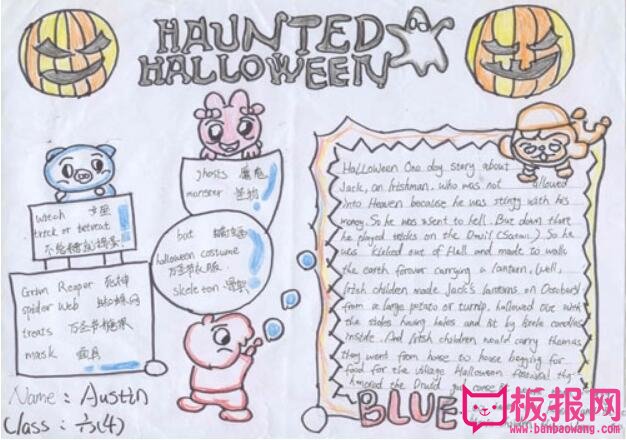 HAUNTED
HALLOWEEN
ghosts 魔鬼
monster 怪物
witch 女巫
trick or tetreat
不给糖就捣蛋
bat 蝙蝠
halloween costume
万圣节衣服
skeleton
Grim Reaper 死神
spider web 蜘蛛网
treats 万圣节糖果
mask 面具
Name: Austin
Class: 六(4)
Halloween One day story about
Jack, an Irishman, who was not allowed
into Heaven because he was stingy with his
money. So he was sent to hell. But down there
he played tricks on the Devil (Satan). So he
was kicked out of Hell and made to walk
the earth forever carrying a lantern. Well,
Irish children made Jack's lanterns on October31
from a large potato or turnip, hallowed out with
the sides having holes and lit by little candles
inside. And Irish children would carry them as
they went from house to house begging for
food for the village Halloween festival that
honored the Druid god
BLUE
板报网
www.banbaowang.com